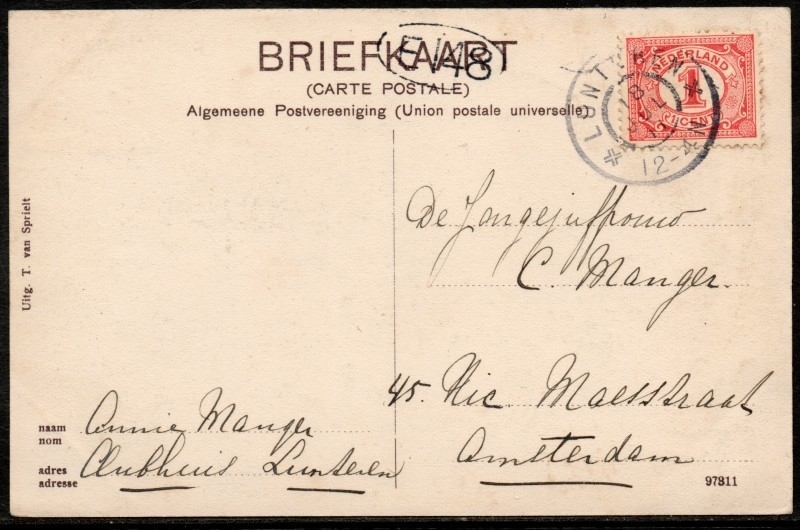 BRIEFKAART
(CARTE POSTALE)
Algemeene Postvereeniging (Union postale universelle)
NEDERLAND
1
CENT
LUNTEREN
18
JUL
12-
Uitg. T. van Sprielt
De Jongejuffrouw
C. Manger.
45. Nic. Maesstraat
Amsterdam
naam
nom
Annie Manger
adres
adresse
Clubhuis Lunteren
97311